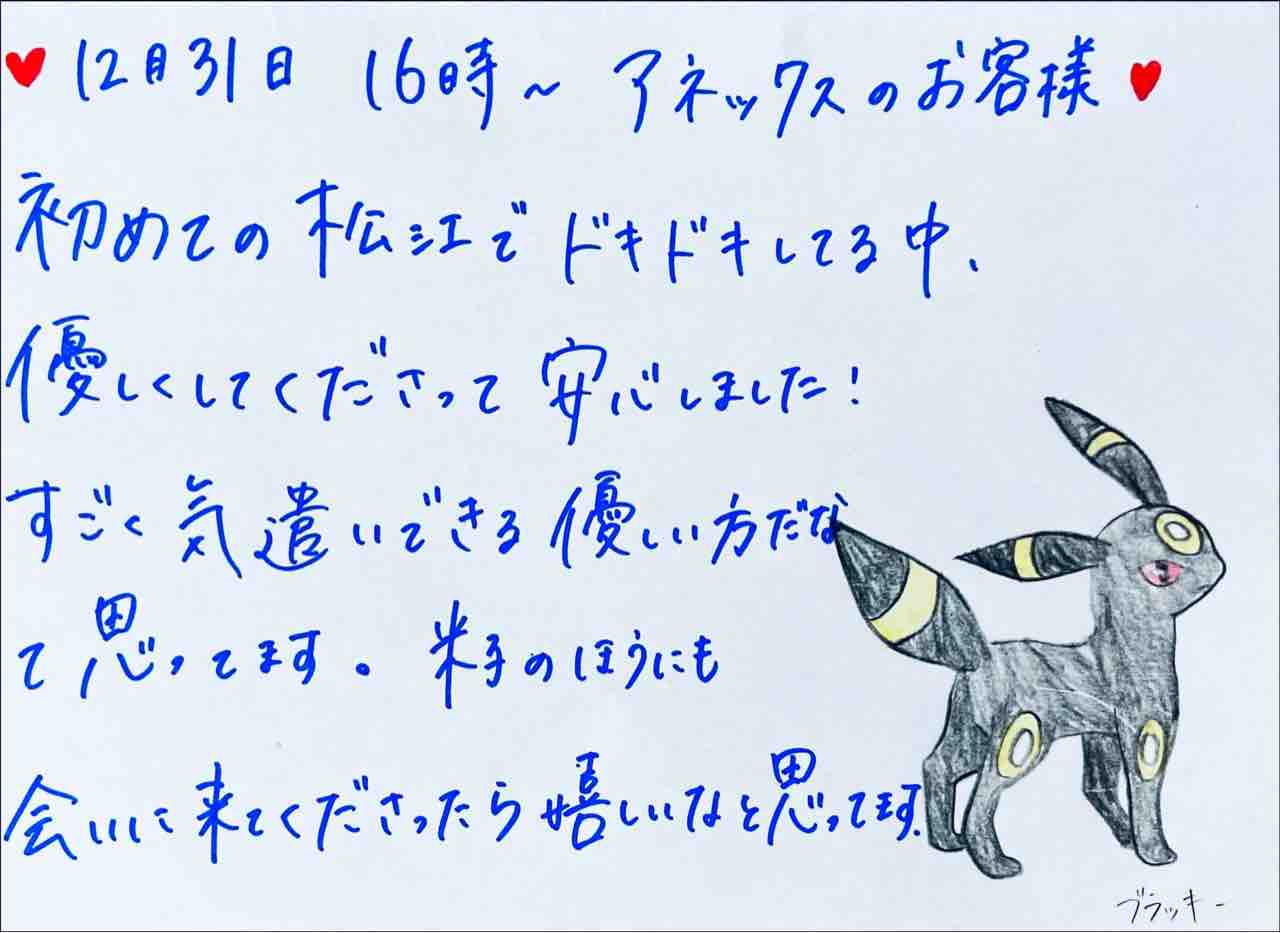 ♥12月31日 16時~ アネックスのお客様♥
初めての松江でドキドキしてる中、
優しくしてくださって安心しました!
すごく気遣いできる優しい方だな
て思ってます。米子のほうにも
会いに来てくださったら嬉しいなと思ってます、
ブラッキー